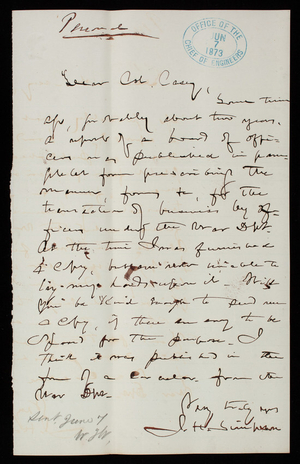 Personal
OFFICE OF THE
JUN
7
1873
CHIEF OF ENGINEERS
Dear Col. Casey,
Some time
ago, probably about two years,
a report of a board of offi-
cers was published in pam-
phlet form prescribing the
manner, forms &c, for the
transaction of business by of-
fices under the War Dpt.
At the time I was furnished
a copy, but am now unable to
lay my hands upon it. Will
you be kind enough to send me
a copy, if there are any to be
spared for the purpose. I
think it was published in the
form of a circular from the
War Dpt.
Very truly yrs
J. H. Simpson
Sent June 7